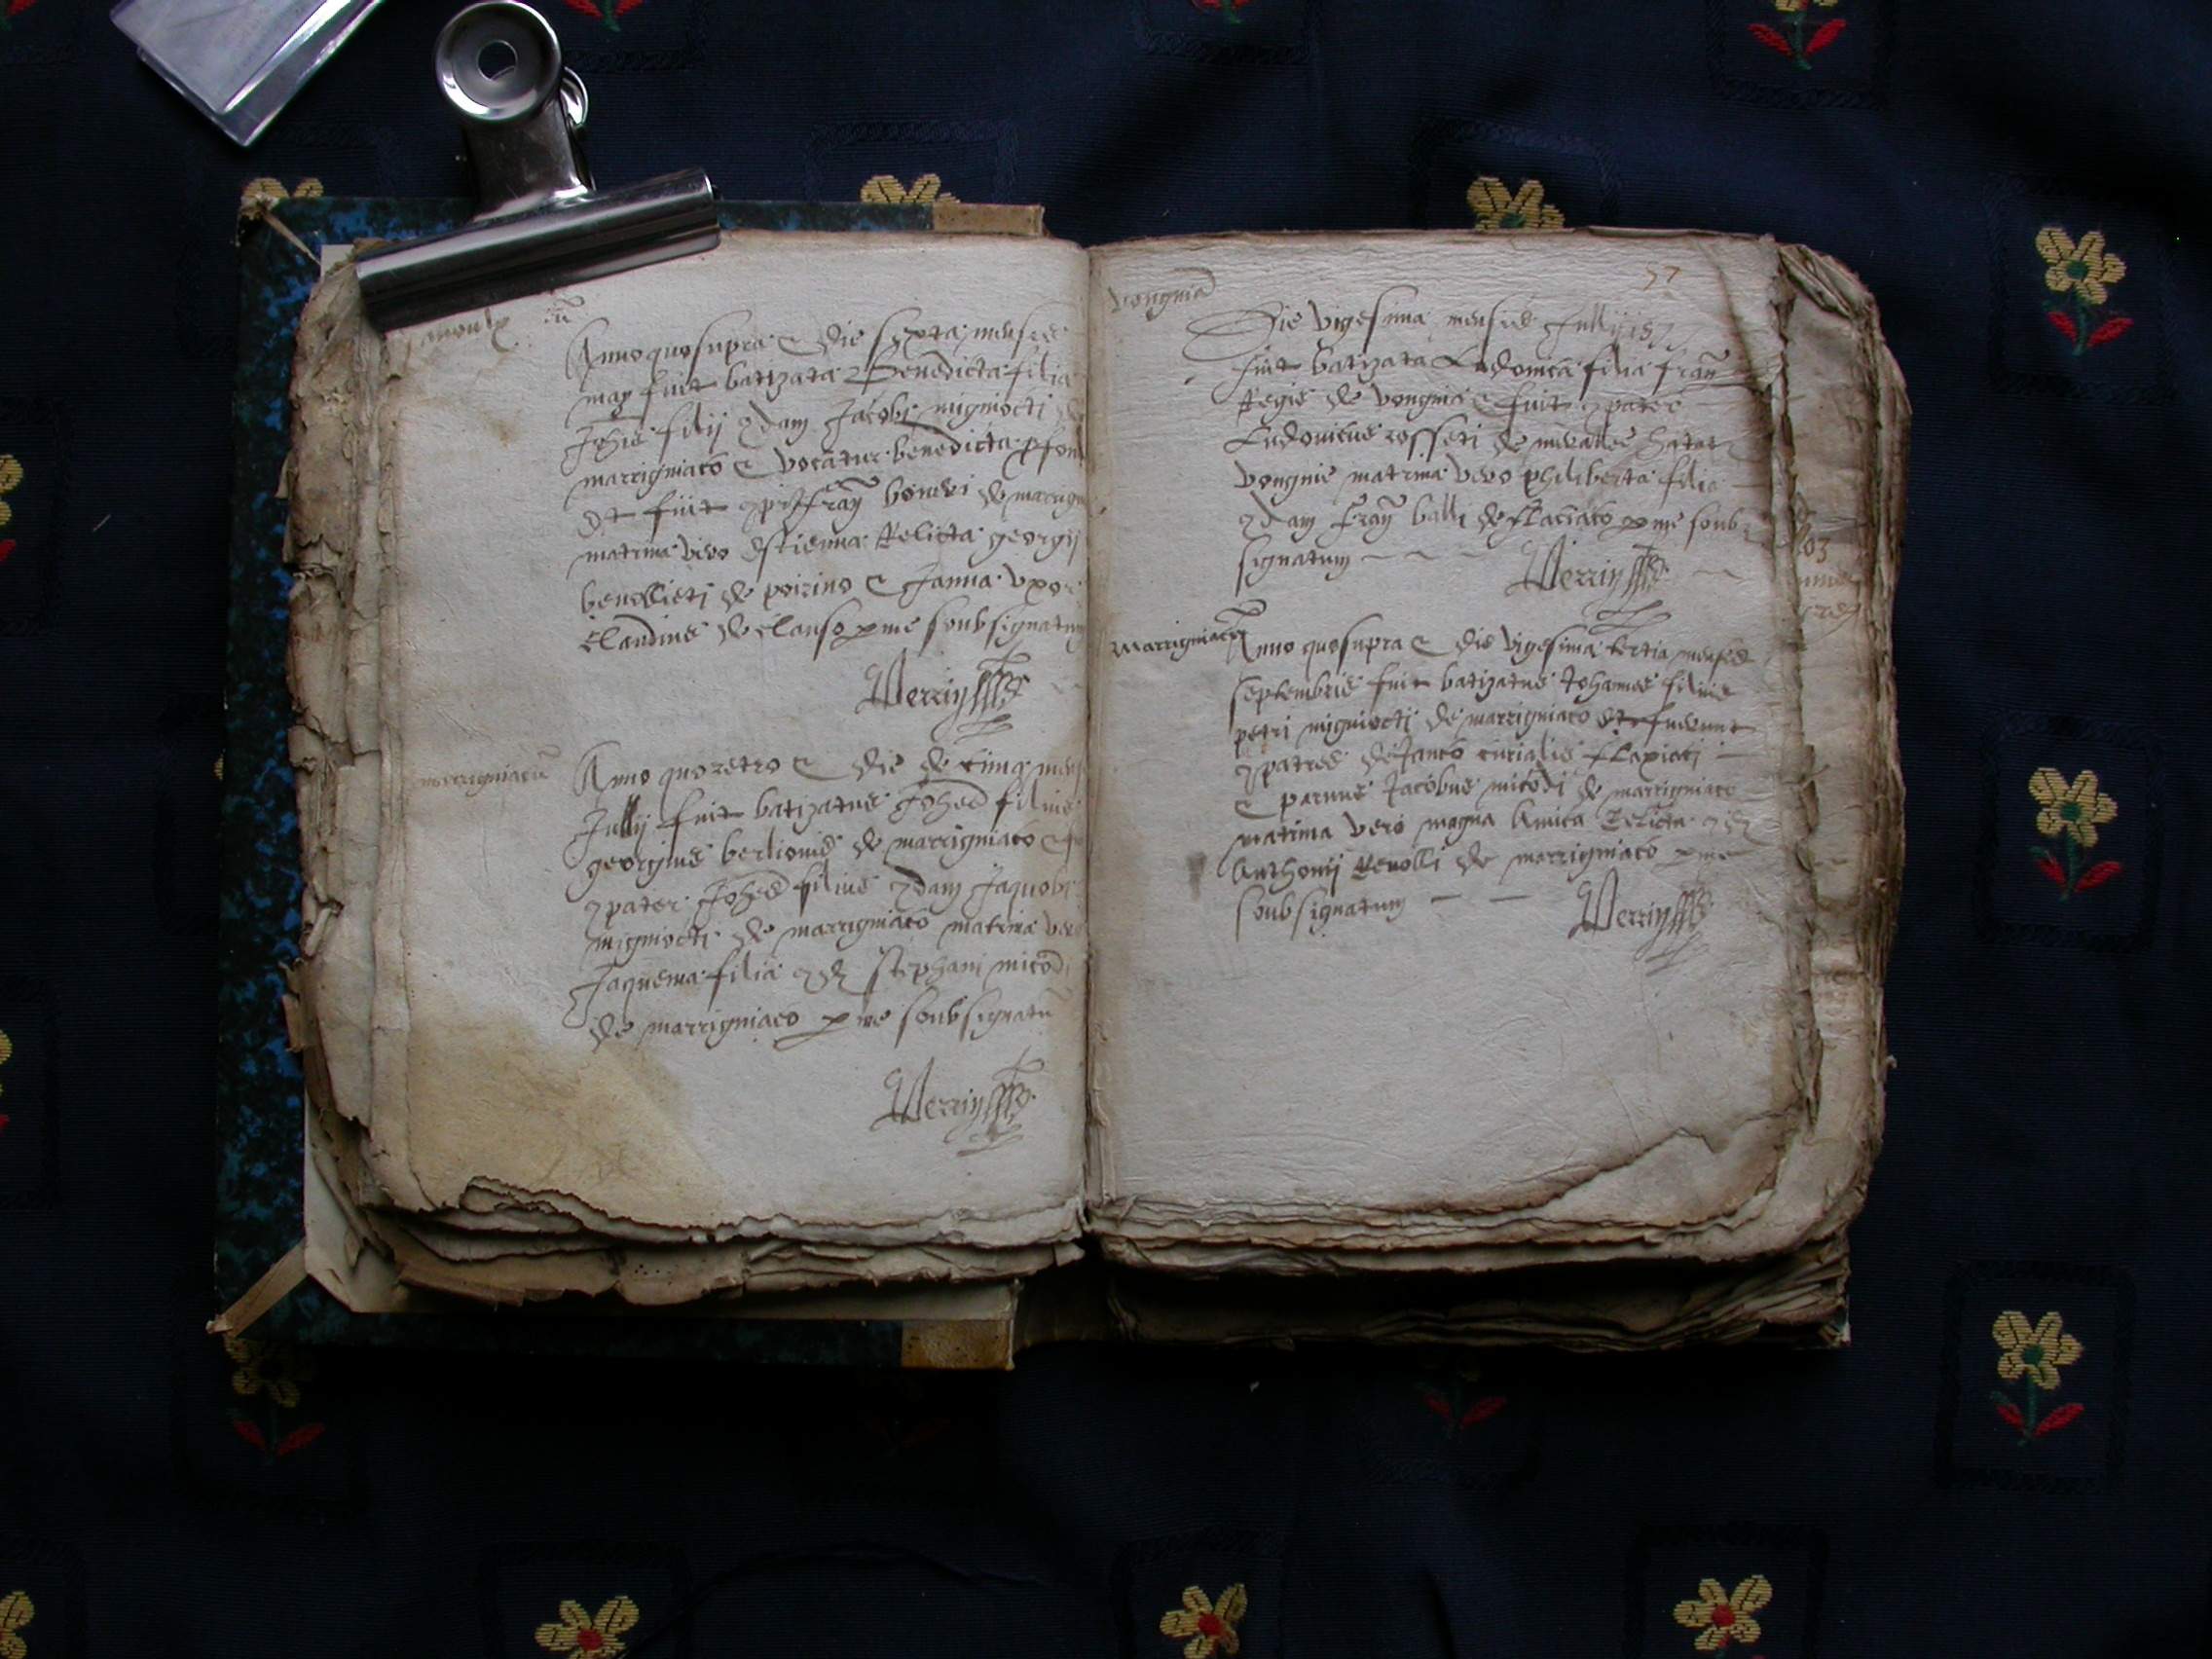 Anno quo supra & die sexta mensis
may fuit batizata Benedicta filia
Johis filij qdam Jacobi migniocti
marrigniaco & vocatur benedicta
Et fuit fran bonevi de marrign
matrina vero Estienna Relicta georgij
benollieti de poirino & Janna vxor
Claudius de clauso p me soubsignatum
Verrin
marrigniacu
Anno quo retro & die decima mens
Jullij fuit batizatus Johes filius
georgius berlionis de marrigniaco
9pater Johes filius qdam Jaquobi
migniocti de marrigniaco matrina vero
Jaquema filia qd Stephani micodi
de marrigniaco p me soubsignatu
Verrin
vongnia
57
Die vigesima mensis Jullij 157
fuit batizata Ludovica filia fran
Regis de vongnie & fuit 9pater
Ludovicus rosseti de
vongnie matrina vero philiberta filia
qdam fran balli de flaciaco p me soub
signatum
Verrin
Marrigniacu
Anno quo supra & die vigesima tertia mensis
septembris fuit batizatus Johannes filius
petri migniocti de marrigniaco et fuerunt
9patres curialis flaxiaci
& parvus Jacobus micodi de marrigniaco
matrina vero magna Amica Relicta qd
Anthonij Revolli de marrigniaco p me
soubsignatum
Verrin